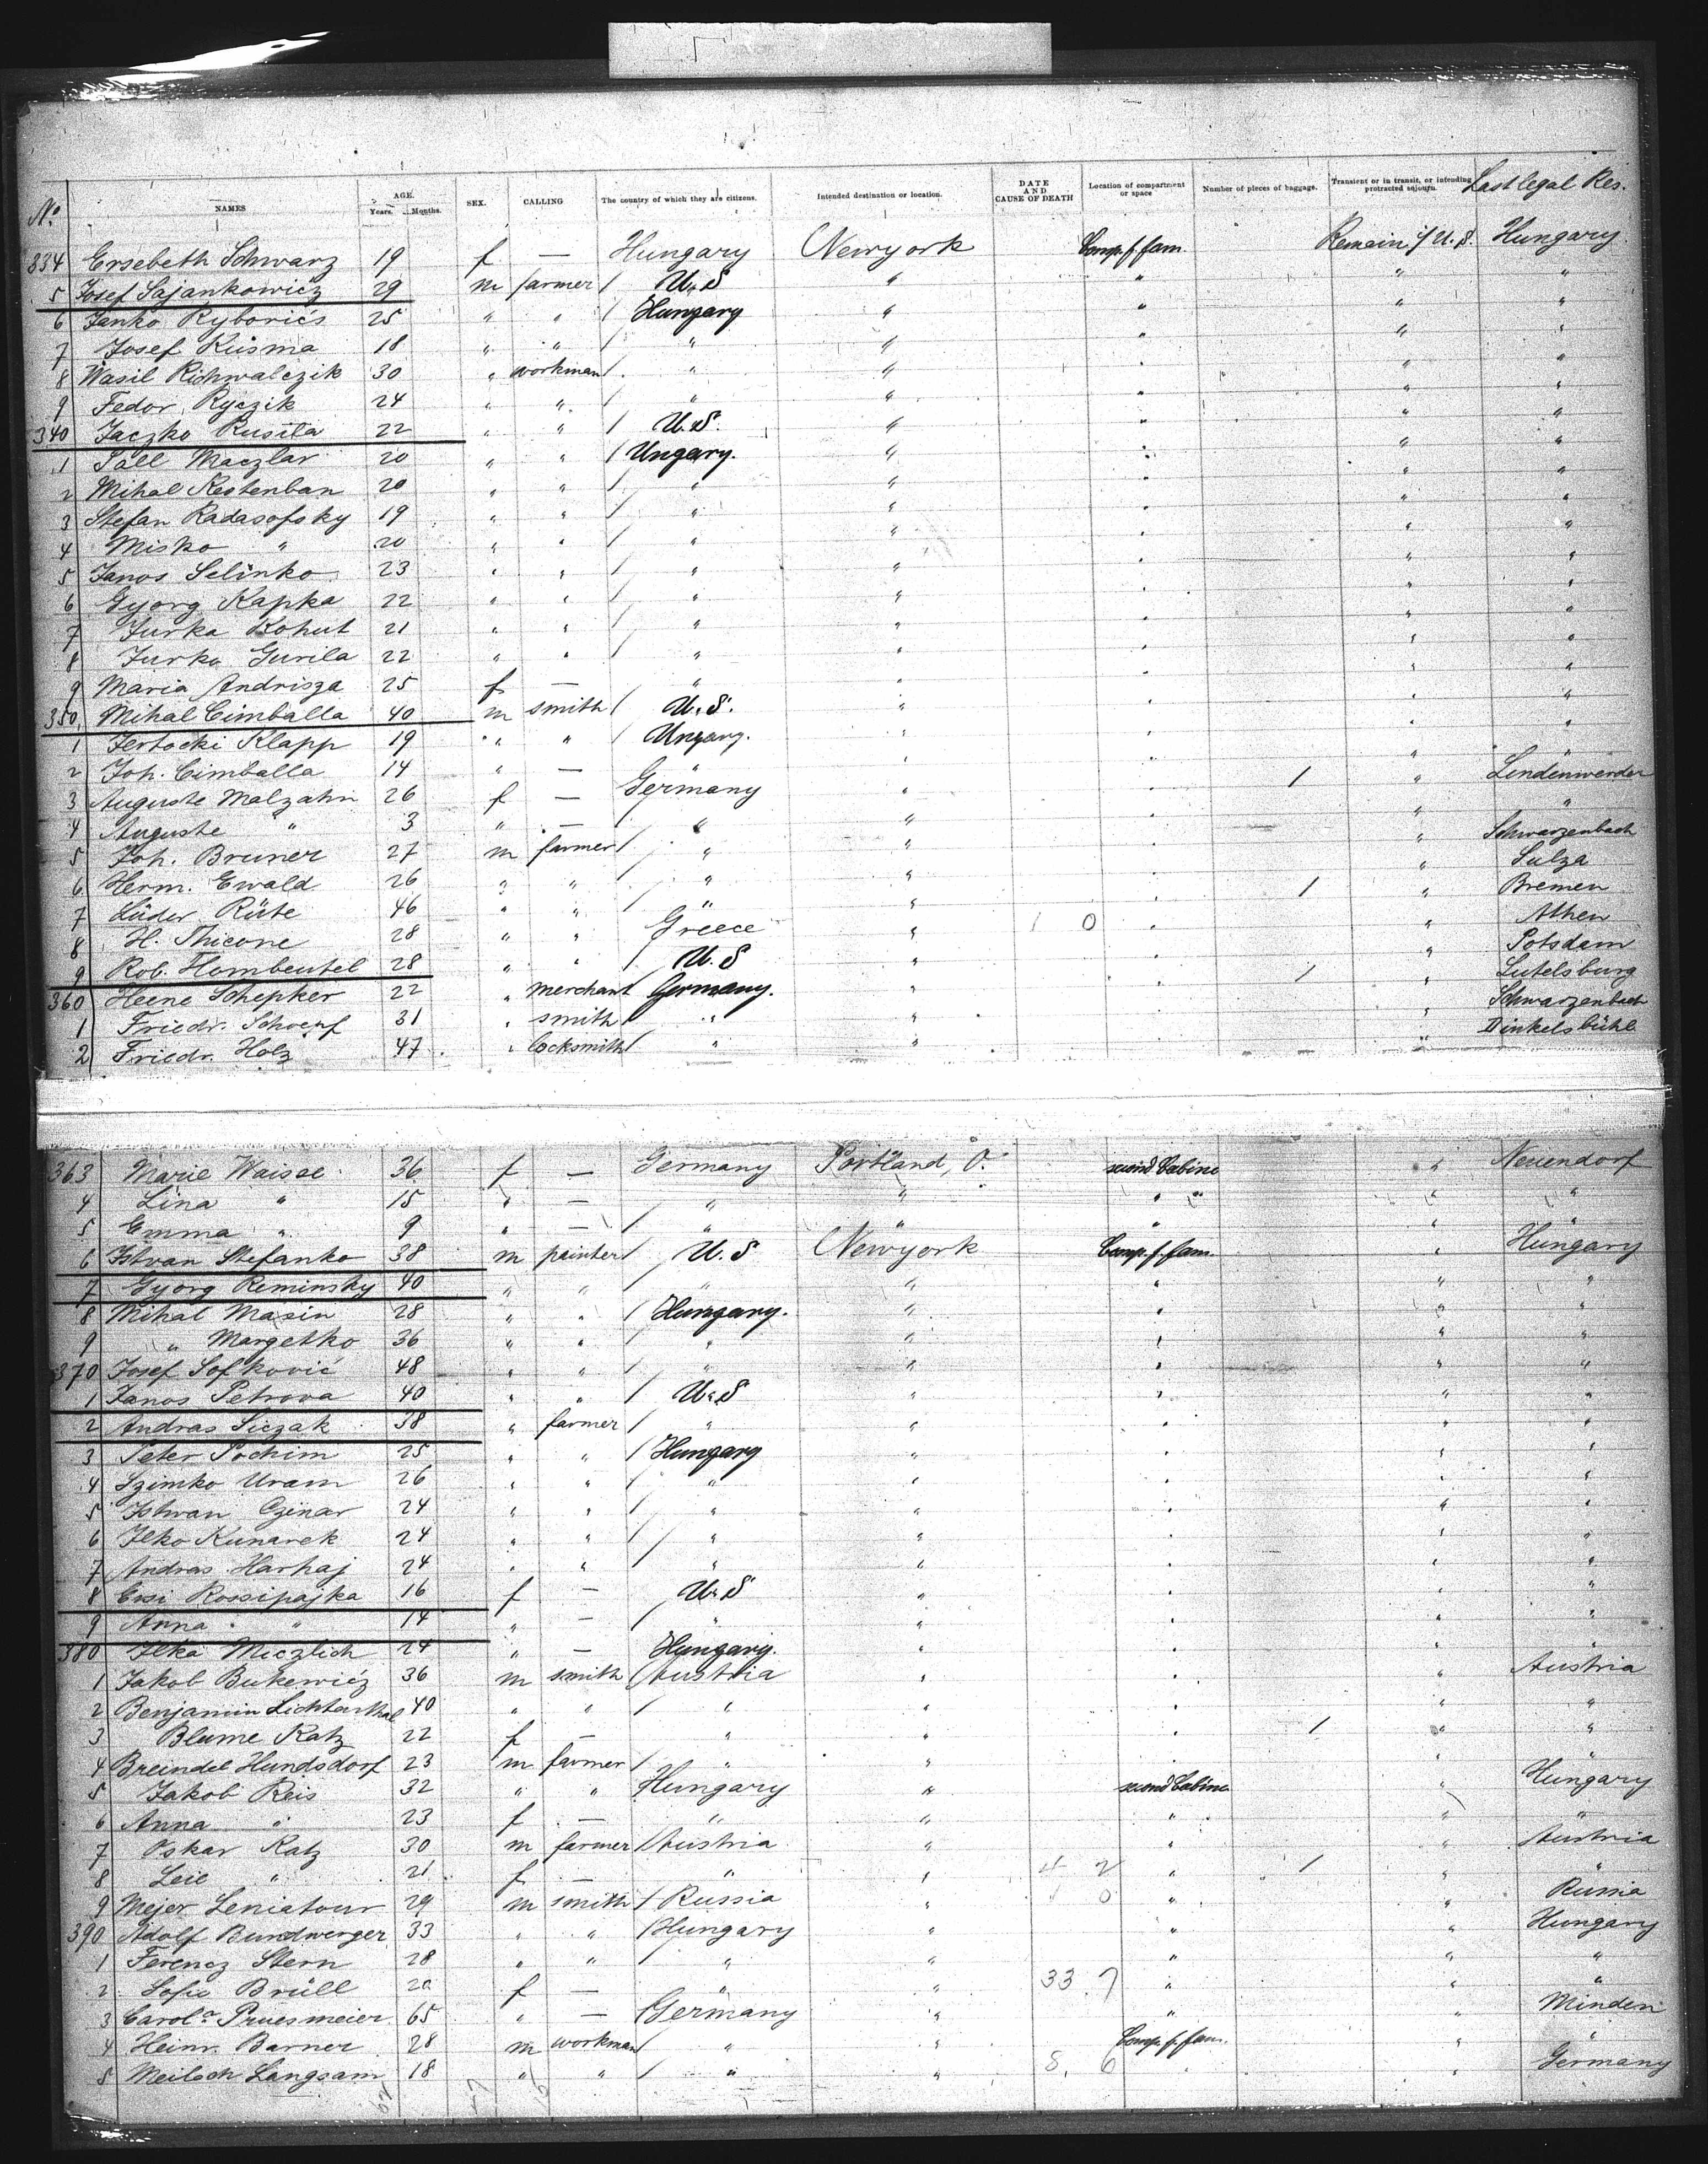 No. NAMES AGE. Years. Months. SEX. CALLING The country of which they are citizens. Intended destination or location. DATE AND CAUSE OF DEATH Location of compartment or space Number of pieces of baggage. Transient or in transit, or intending protracted sojourn. Last legal Res.
334 Ersebeth Schwarz 19 f — Hungary Newyork Comp. f. fam. Remain i/ U.S. Hungary
5 Josef Sajankowicz 29 m farmer / U.S " " " "
6 Janko Ryborićs 25 " " / Hungary " " " "
7 Josef Kusma 18 " " / " " " " "
8 Wasil Richwalczik 30 " workman / " " " " "
9 Fedor Ryczik 24 " " / " " " " "
340 Jaczko Rusita 22 " " / U.S. " " " "
1 Pall Maczlar 20 " " / Ungary. " " " "
2 Mihal Kestenban 20 " " / " " " " "
3 Stefan Radasofsky 19 " " / " " " " "
4 Misko " 20 " " / " " " " "
5 Janos Selinko 23 " " / " " " " "
6 Gyorg Kapka 22 " " / " " " " "
7 Jurka Kohut 21 " " / " " " " "
8 Jurko Gurila 22 " " / " " " " "
9 Maria Andrisza 25 f — " " " " "
350 Mihal Cimballa 40 m smith / U.S. " " " "
1 Jertocki Klapp 19 " " / Ungary. " " " "
2 Joh. Cimballa 14 " — " " " "
3 Auguste Malzahn 26 f — Germany " " 1 " Lindenwerder
4 Auguste " 3 " — " " " " "
5 Joh. Bruner 27 m farmer / " " " " Schwarzenbach
6 Herm. Ewald 26 " " / " " " " Sulza
7 Lüder Rüte 46 " " / " " " 1 " Bremen
8 H. Thicone 28 " " Greece " 1 0 " " Athen
9 Rob. Hombeutel 28 " " / U.S " " " Potsdam
360 Heene Schepker 22 " merchant Germany. " " 1 " Lutelsburg
1 Friedr. Schoepf 31 " smith / " " " Schwarzenbach
2 Friedr. Holz 47 " locksmith / " " " Dinkelsbühl
363 Marie Waisse 36 f — Germany Portland, O. second Cabine " Neuendorf
4 Lina " 15 " — " " " " " "
5 Emma " 9 " — / " " " " "
6 Istvan Stefanko 38 m painter / U.S Newyork Comp. f. fam. " Hungary
7 Gyorg Reminsky 40 " " / " " " " "
8 Mihal Masin 28 " " / Hungary. " " " "
9 " Margetko 36 " " / " " " " "
370 Josef Sofković 48 " " / " " " " "
1 Janos Petrova 40 " " / U.S " " " "
2 Andras Siczak 38 " farmer / " " " " "
3 Peter Pochim 25 " " / Hungary " " " "
4 Szimko Uram 26 " " / " " " " "
5 Istvan Czinar 24 " " / " " " " "
6 Ilko Kunarek 24 " " / " " " " "
7 Andras Harhaj 24 " " / " " " " "
8 Ersi Rossipajka 16 f — U.S " " " "
9 Anna " 14 " — / " " " " "
380 Ilka Miczlich 24 " — Hungary. " " " "
1 Jakob Bukewicz 36 m smith / Austria " " " Austria
2 Benjamin Lichtenthal 40 " " / " " " " "
3 Blume Katz 22 f — " " " 1 " "
4 Breindel Hundsdorf 23 m farmer / " " " " "
5 Jakob Reis 32 " " Hungary " second Cabine " Hungary
6 Anna " 23 f — " " " " "
7 Oskar Katz 30 m farmer / Austria " " " Austria
8 Leie " 21 f — " " 4 2 " 1 " "
9 Mejer Leniatour 29 m smith / Russia " 1 0 " " Russia
390 Adolf Bundwerger 33 " " / Hungary " " " Hungary
1 Ferencz Stern 28 " " / " " " " "
2 Sofie Brüll 20 f — " " 33 7 " " "
3 Carola Pruesmeier 65 " — Germany " " " Minden
4 Heinr. Barner 28 m workman / " " Comp. f. fam. " "
5 Meiloch Langsam 18 " " / " " 8. 6 " " Germany